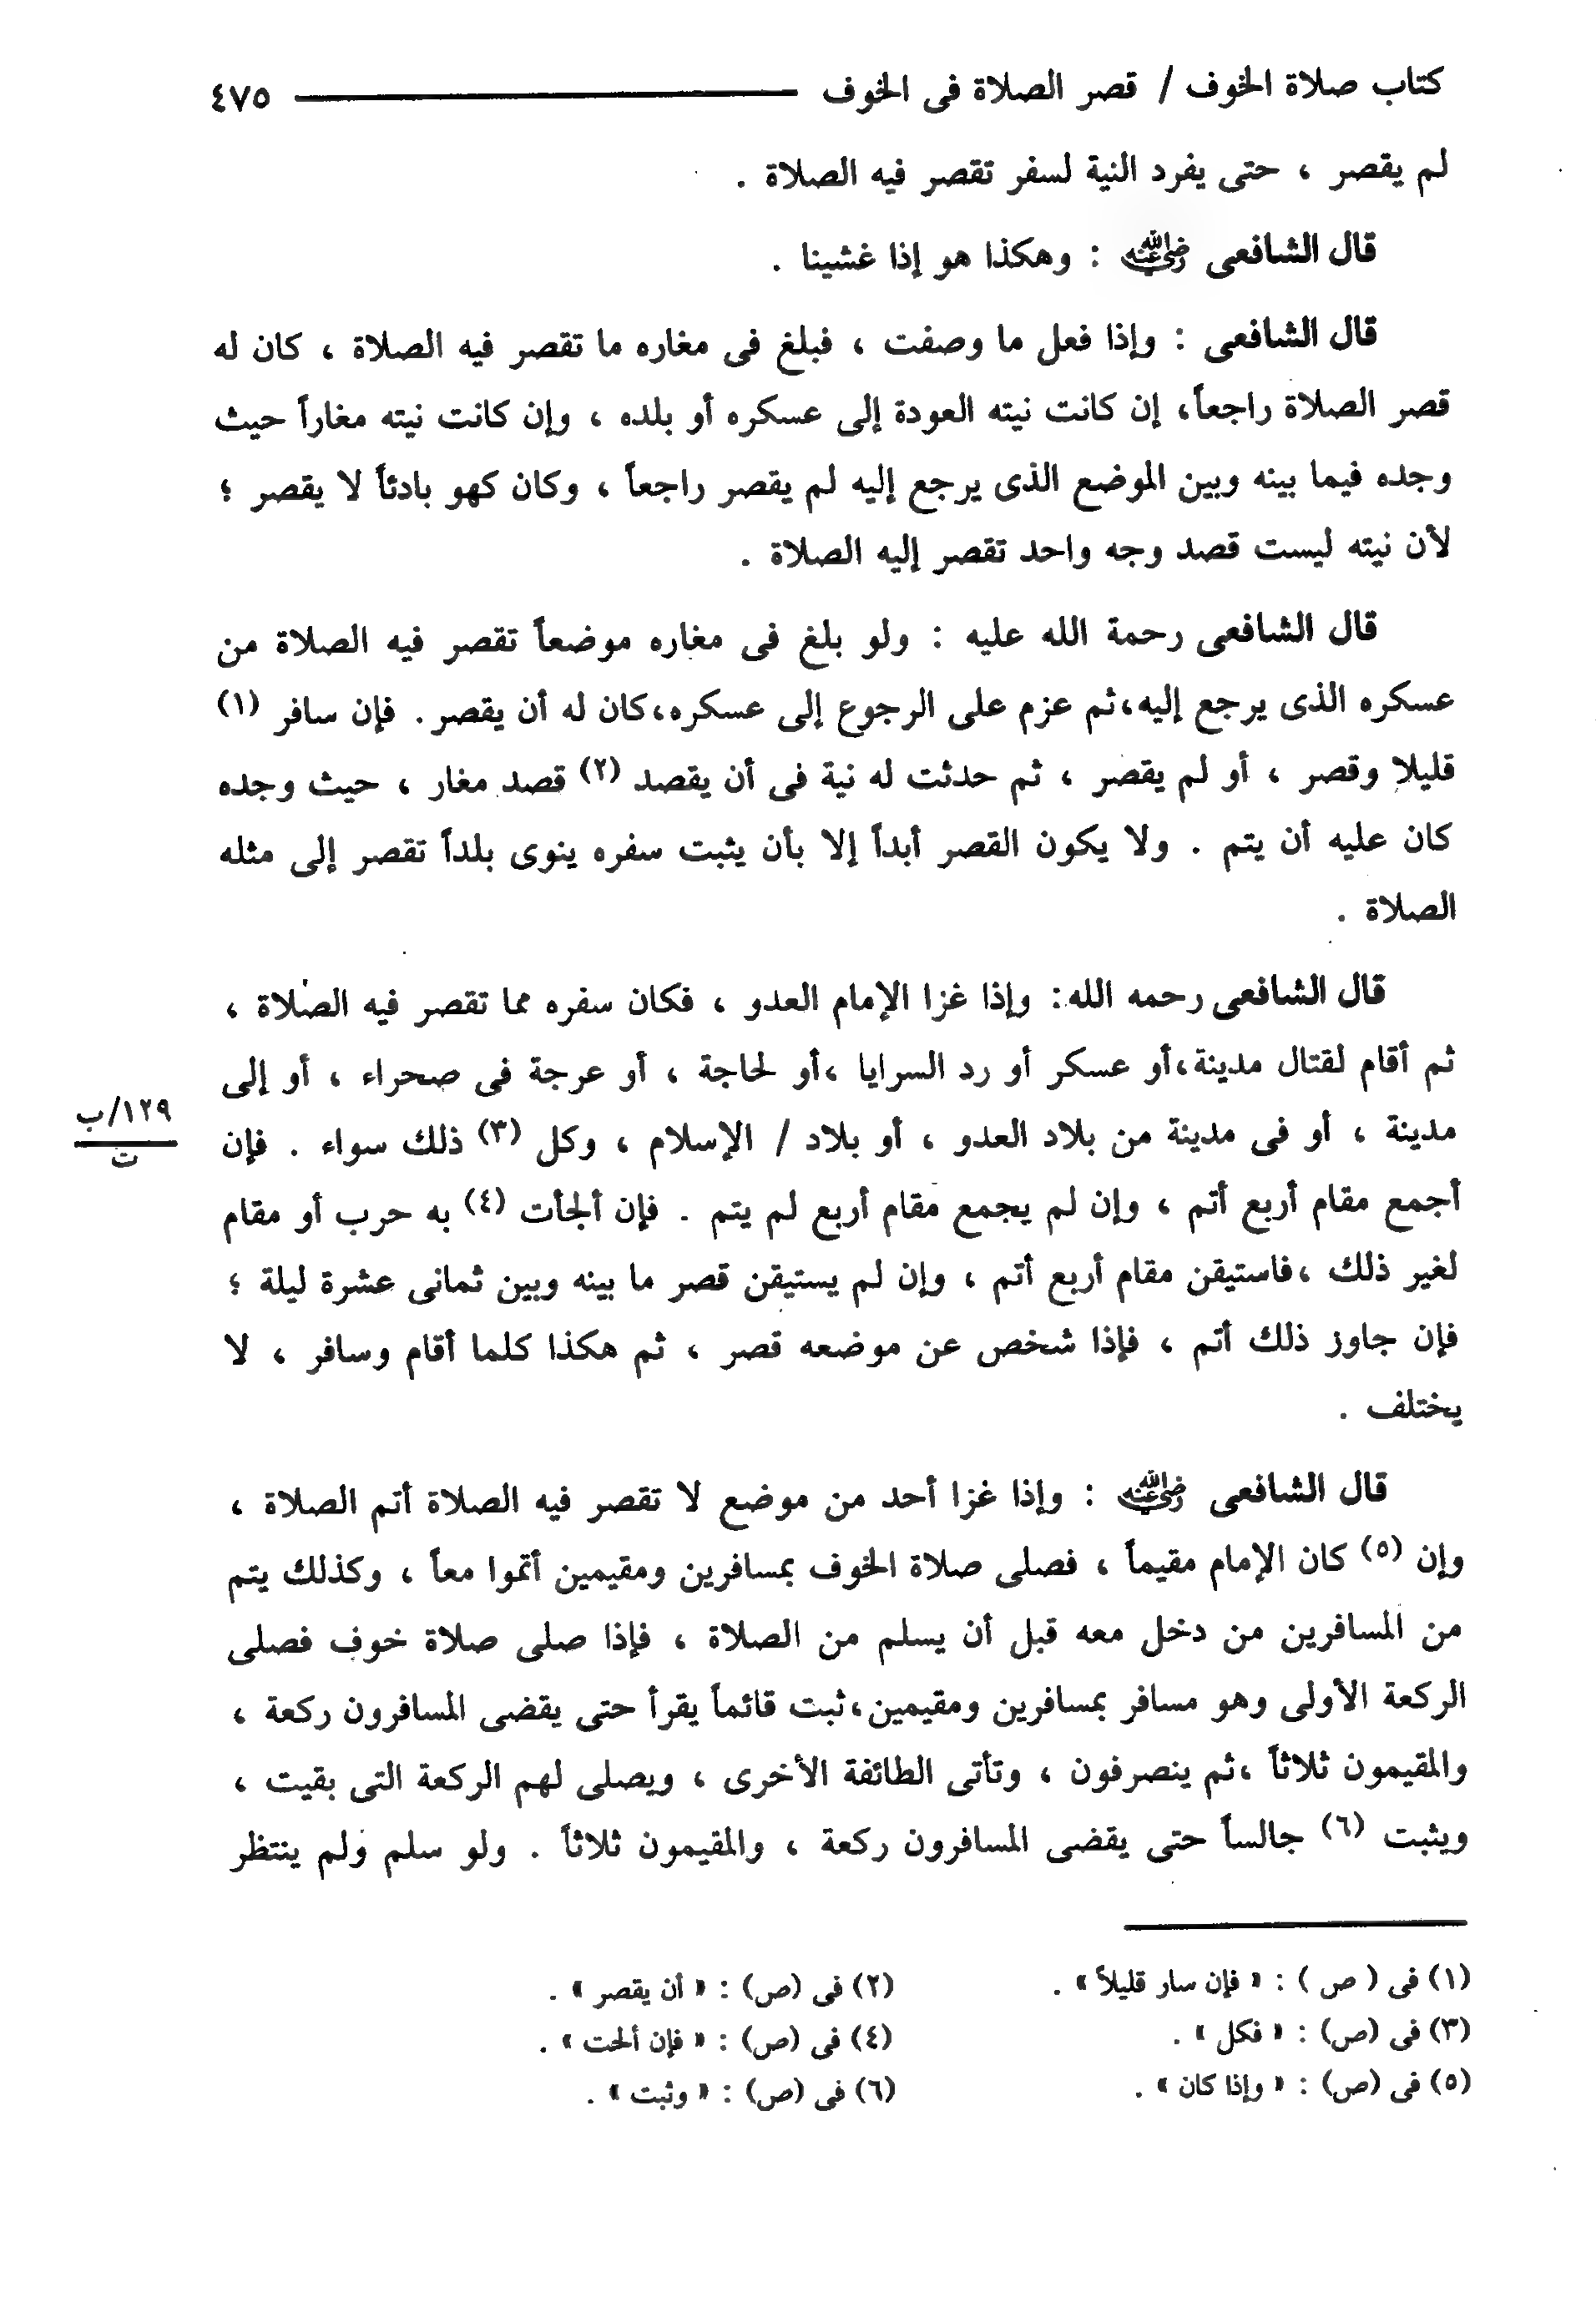 كتاب صلاة الخوف / قصر الصلاة فى الخوف ٤٧٥
لم يقصر ، حتى يفرد النية لسفر تقصر فيه الصلاة .
قال الشافعى رضي الله عنه : وهكذا هو إذا غشينا .
قال الشافعى : وإذا فعل ما وصفت ، فبلغ فى مغاره ما تقصر فيه الصلاة ، كان له
قصر الصلاة راجعاً، إن كانت نيته العودة إلى عسكره أو بلده ، وإن كانت نيته مغاراً حيث
وجده فيما بينه وبين الموضع الذى يرجع إليه لم يقصر راجعاً ، وكان كهو بادئاً لا يقصر ؛
لأن نيته ليست قصد وجه واحد تقصر إليه الصلاة .
قال الشافعى رحمة الله عليه : ولو بلغ فى مغاره موضعاً تقصر فيه الصلاة من
عسكره الذى يرجع إليه،ثم عزم على الرجوع إلى عسكره،كان له أن يقصر. فإن سافر (١)
قليلا وقصر ، أو لم يقصر ، ثم حدثت له نية فى أن يقصد (٢) قصد مغار ، حيث وجده
كان عليه أن يتم . ولا يكون القصر أبداً إلا بأن يثبت سفره ينوى بلداً تقصر إلى مثله
الصلاة .
قال الشافعى رحمه الله: وإذا غزا الإمام العدو ، فكان سفره مما تقصر فيه الصلاة ،
ثم أقام لقتال مدينة،أو عسكر أو رد السرايا ،أو لحاجة ، أو عرجة فى صحراء ، أو إلى
مدينة ، أو فى مدينة من بلاد العدو ، أو بلاد / الإسلام ، وكل (٣) ذلك سواء . فإن
١٢٩/ب
ت
أجمع مقام أربع أتم ، وإن لم يجمع مقام أربع لم يتم . فإن ألجأت (٤) به حرب أو مقام
لغير ذلك ،فاستيقن مقام أربع أتم ، وإن لم يستيقن قصر ما بينه وبين ثمانى عشرة ليلة ؛
فإن جاوز ذلك أتم ، فإذا شخص عن موضعه قصر ، ثم هكذا كلما أقام وسافر ، لا
يختلف .
قال الشافعى رضي الله عنه : وإذا غزا أحد من موضع لا تقصر فيه الصلاة أتم الصلاة ،
وإن (٥) كان الإمام مقيماً ، فصلى صلاة الخوف بمسافرين ومقيمين أتموا معاً ، وكذلك يتم
من المسافرين من دخل معه قبل أن يسلم من الصلاة ، فإذا صلى صلاة خوف فصلى
الركعة الأولى وهو مسافر بمسافرين ومقيمين،ثبت قائماً يقرأ حتى يقضى المسافرون ركعة ،
والمقيمون ثلاثاً ،ثم ينصرفون ، وتأتى الطائفة الأخرى ، ويصلى لهم الركعة التى بقيت ،
ويثبت (٦) جالساً حتى يقضى المسافرون ركعة ، والمقيمون ثلاثاً . ولو سلم ولم ينتظر
(١) فى ( ص ) : « فإن سار قليلاً » . (٢) فى (ص) : « أن يقصر » .
(٣) فى (ص) : « فكل » . (٤) فى (ص) : « فإن ألحت » .
(٥) فى (ص) : « وإذا كان » . (٦) فى (ص) : « وثبت » .